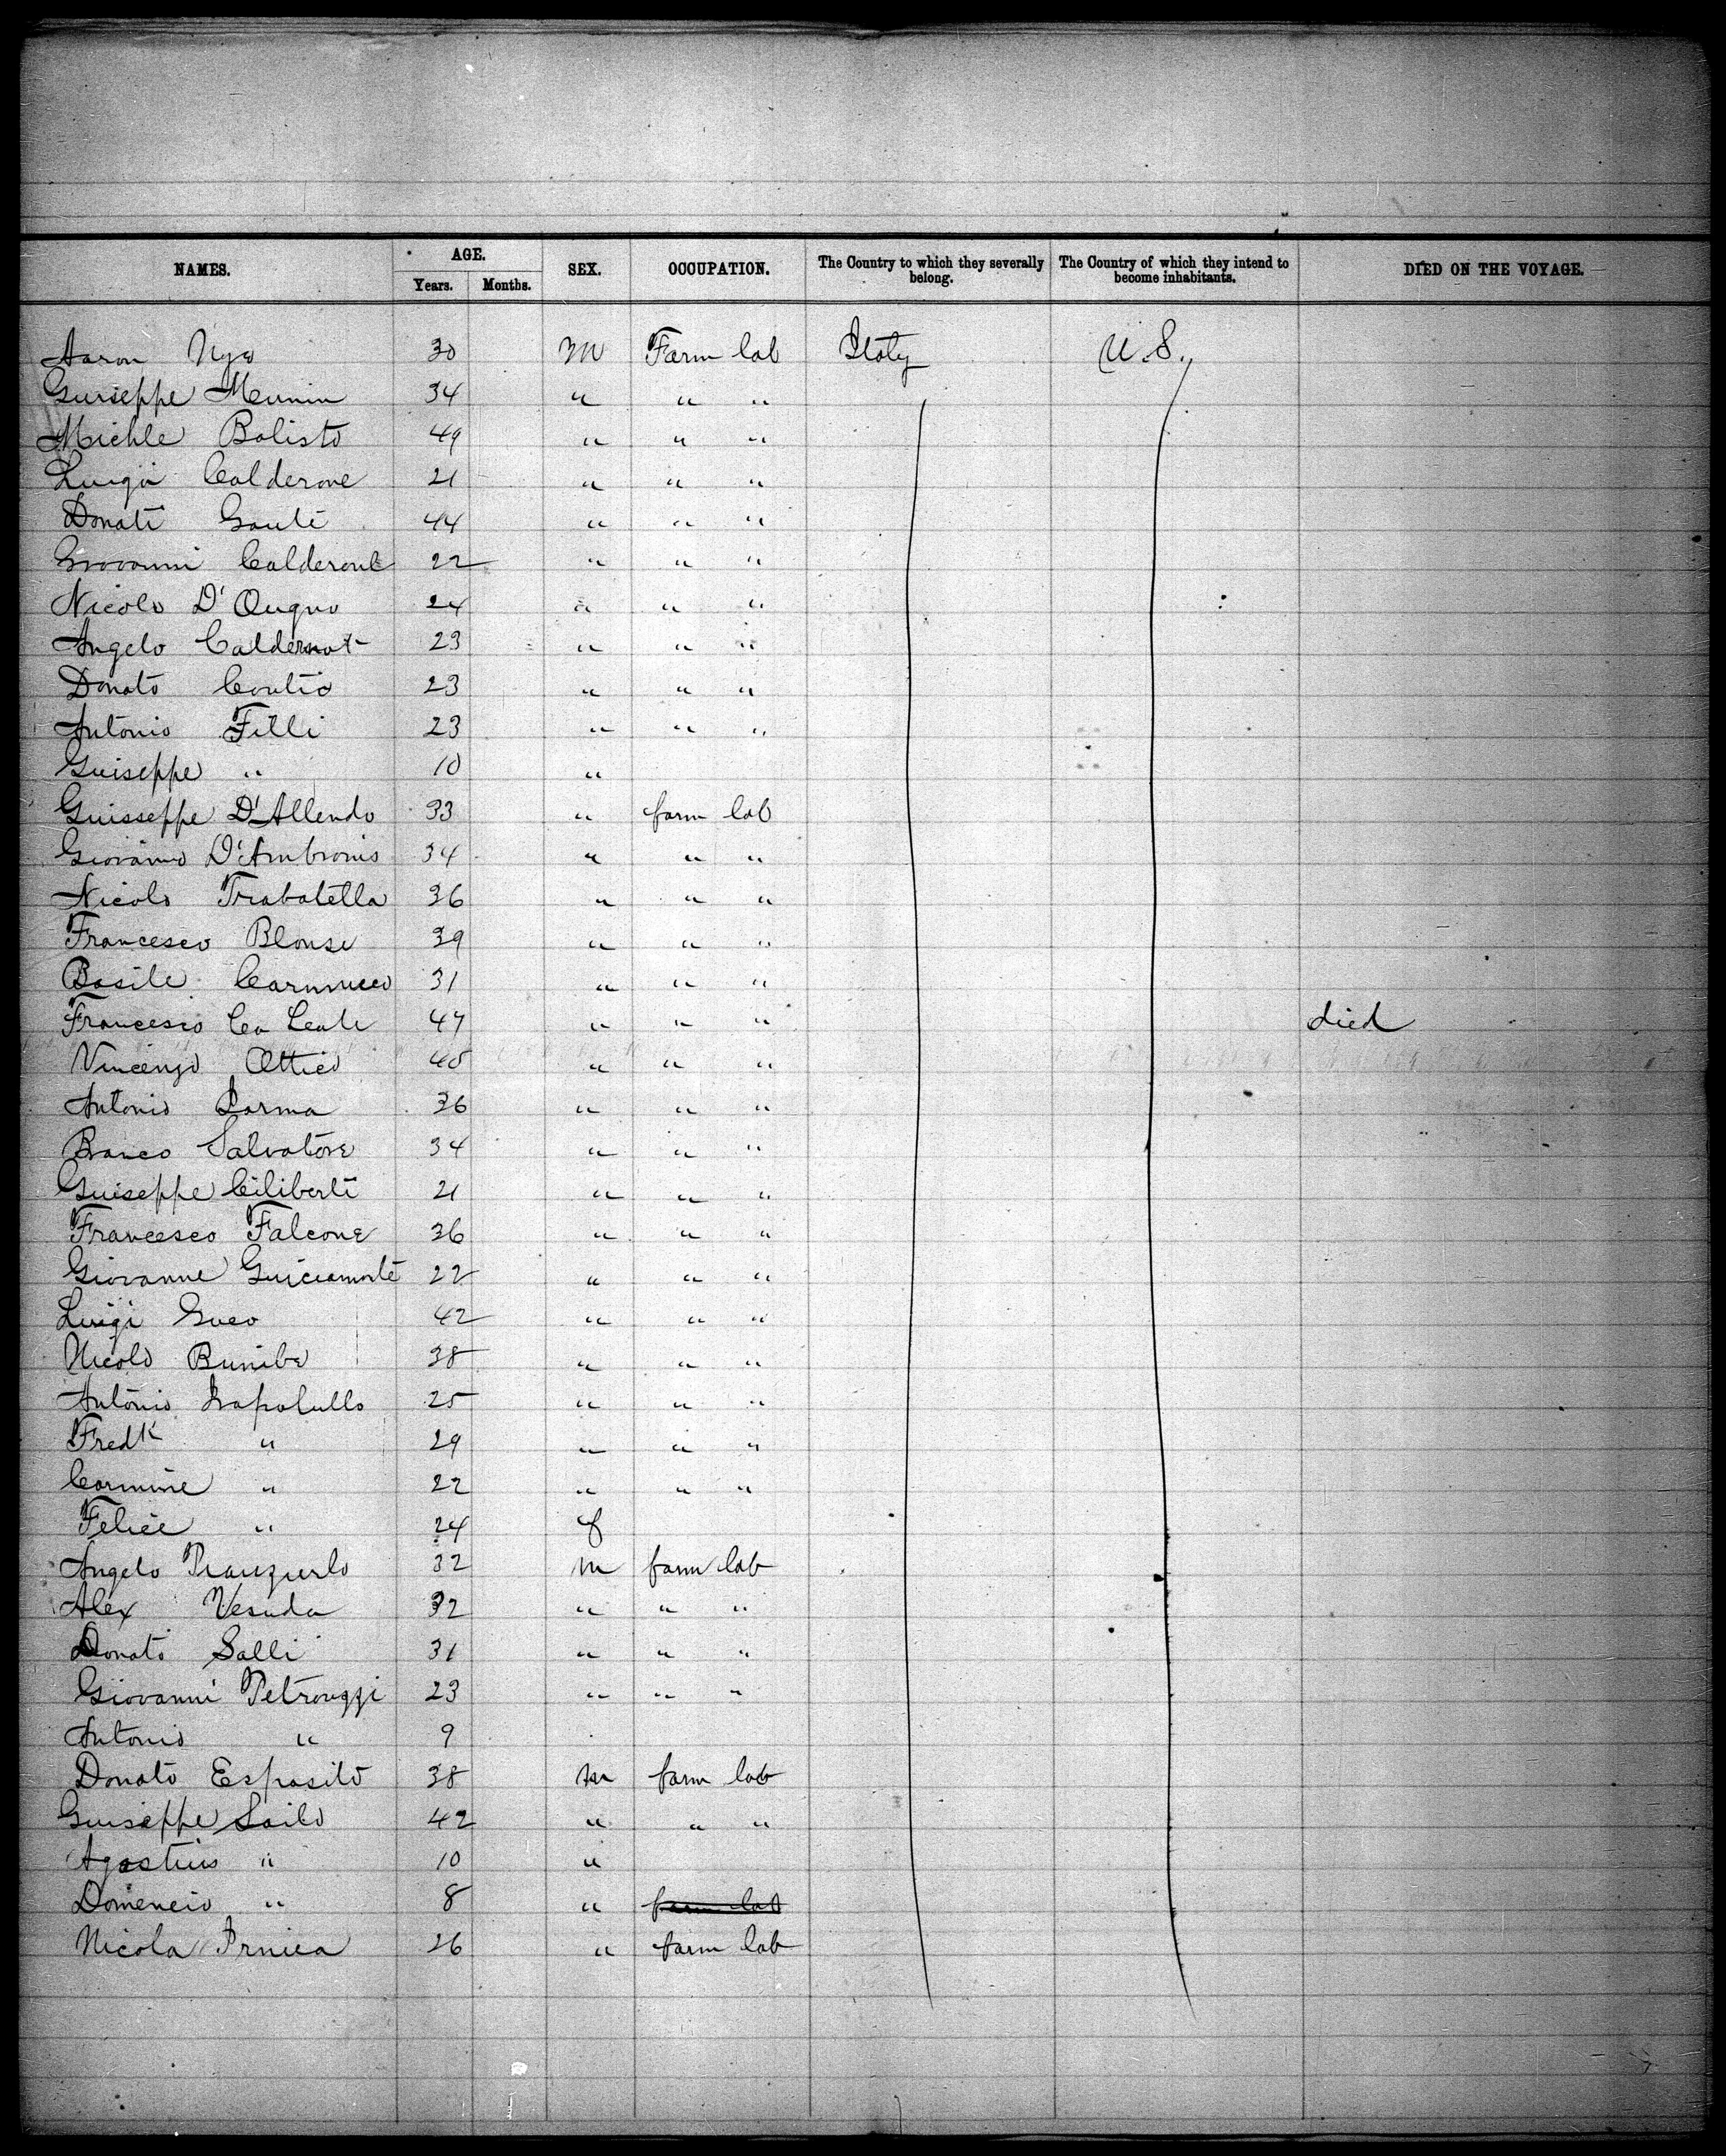 NAMES. AGE. SEX. OCCUPATION. The Country to which they severally belong. The Country of which they intend to become inhabitants. DIED ON THE VOYAGE.
Years. Months.
Aaron Nye 30 M Farm lab Italy U.S.
Guiseppe Mennin 34 " " "
Michle Balisto 49 " " "
Luigi Calderone 21 " " "
Donati Gauti 44 " " "
Giovanni Calderone 22 " " "
Nicolo D' 24 " " "
Angelo Caldernot 23 " " "
Donato Contio 23 " " "
Antonio Filli 23 " " "
Guiseppe " 10 "
Guisseppe D'Allendo 33 " farm lab
Giovanno D'Ambronis 34 " " "
Nicolo Trabatella 36 " " "
Francesco Blonse 39 " " "
Basile 31 " " "
Francesco Ca Leale 47 " " " died
Vincenzo Attieo " " "
Antonio Parma 36 " " "
Banco Salvatore 34 " " "
Guiseppe Ciliberti 21 " " "
Francesco Falcone 36 " " "
Giovanne Guiciamonte 22 " " "
Luigi Guco 42 " " "
Nicolo Bunibe 38 " " "
Antonio 25 " " "
Fredk " 29 " " "
Carmine " 22 " " "
Felice " 24 f
Angelo 32 m farm lab
Alex Vesuda 32 " " "
Donato Salli 31 " " "
Giovanni Petrouzzi 23 " " "
Antonio " 9
Donato Esposito 38 m farm lab
Guiseppe Sailo 42 " " "
Agostino " 10 "
Domencio " 8 " farm lab
Nicola 26 " farm lab